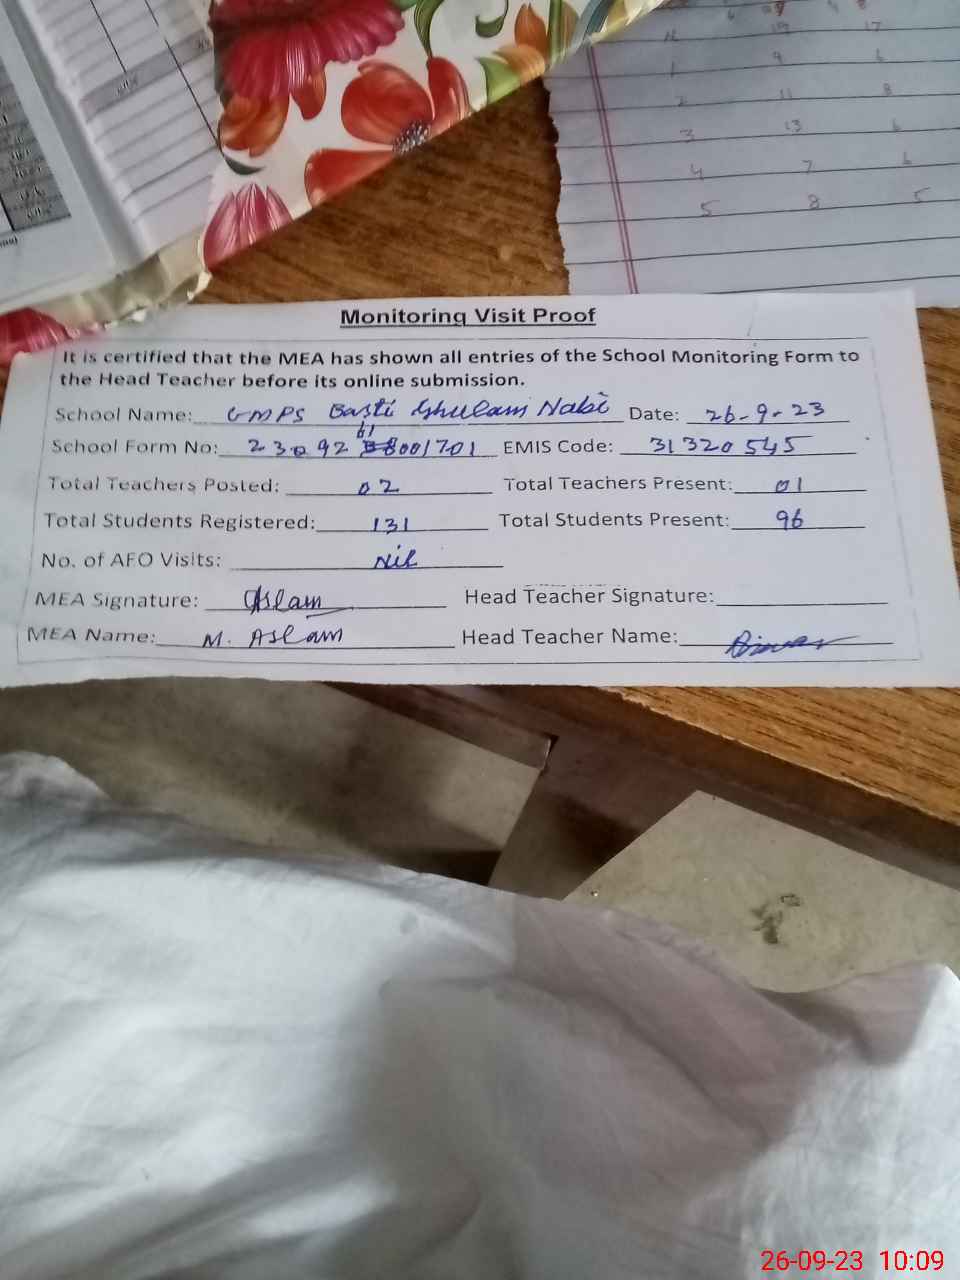 12 19 17
1 9 6
2 11 8
3 13 6
4 7 6
5 8 5
Monitoring Visit Proof
It is certified that the MEA has shown all entries of the School Monitoring Form to
the Head Teacher before its online submission.
School Name: GMPS Basti Ghulam Nabi Date: 26-9-23
School Form No: 23092 61 8001701 EMIS Code: 31320545
Total Teachers Posted: 02 Total Teachers Present: 01
Total Students Registered: 131 Total Students Present: 96
No. of AFO Visits: Nil
MEA Signature: Aslam Head Teacher Signature:
MEA Name: M. Aslam Head Teacher Name:
26-09-23 10:09